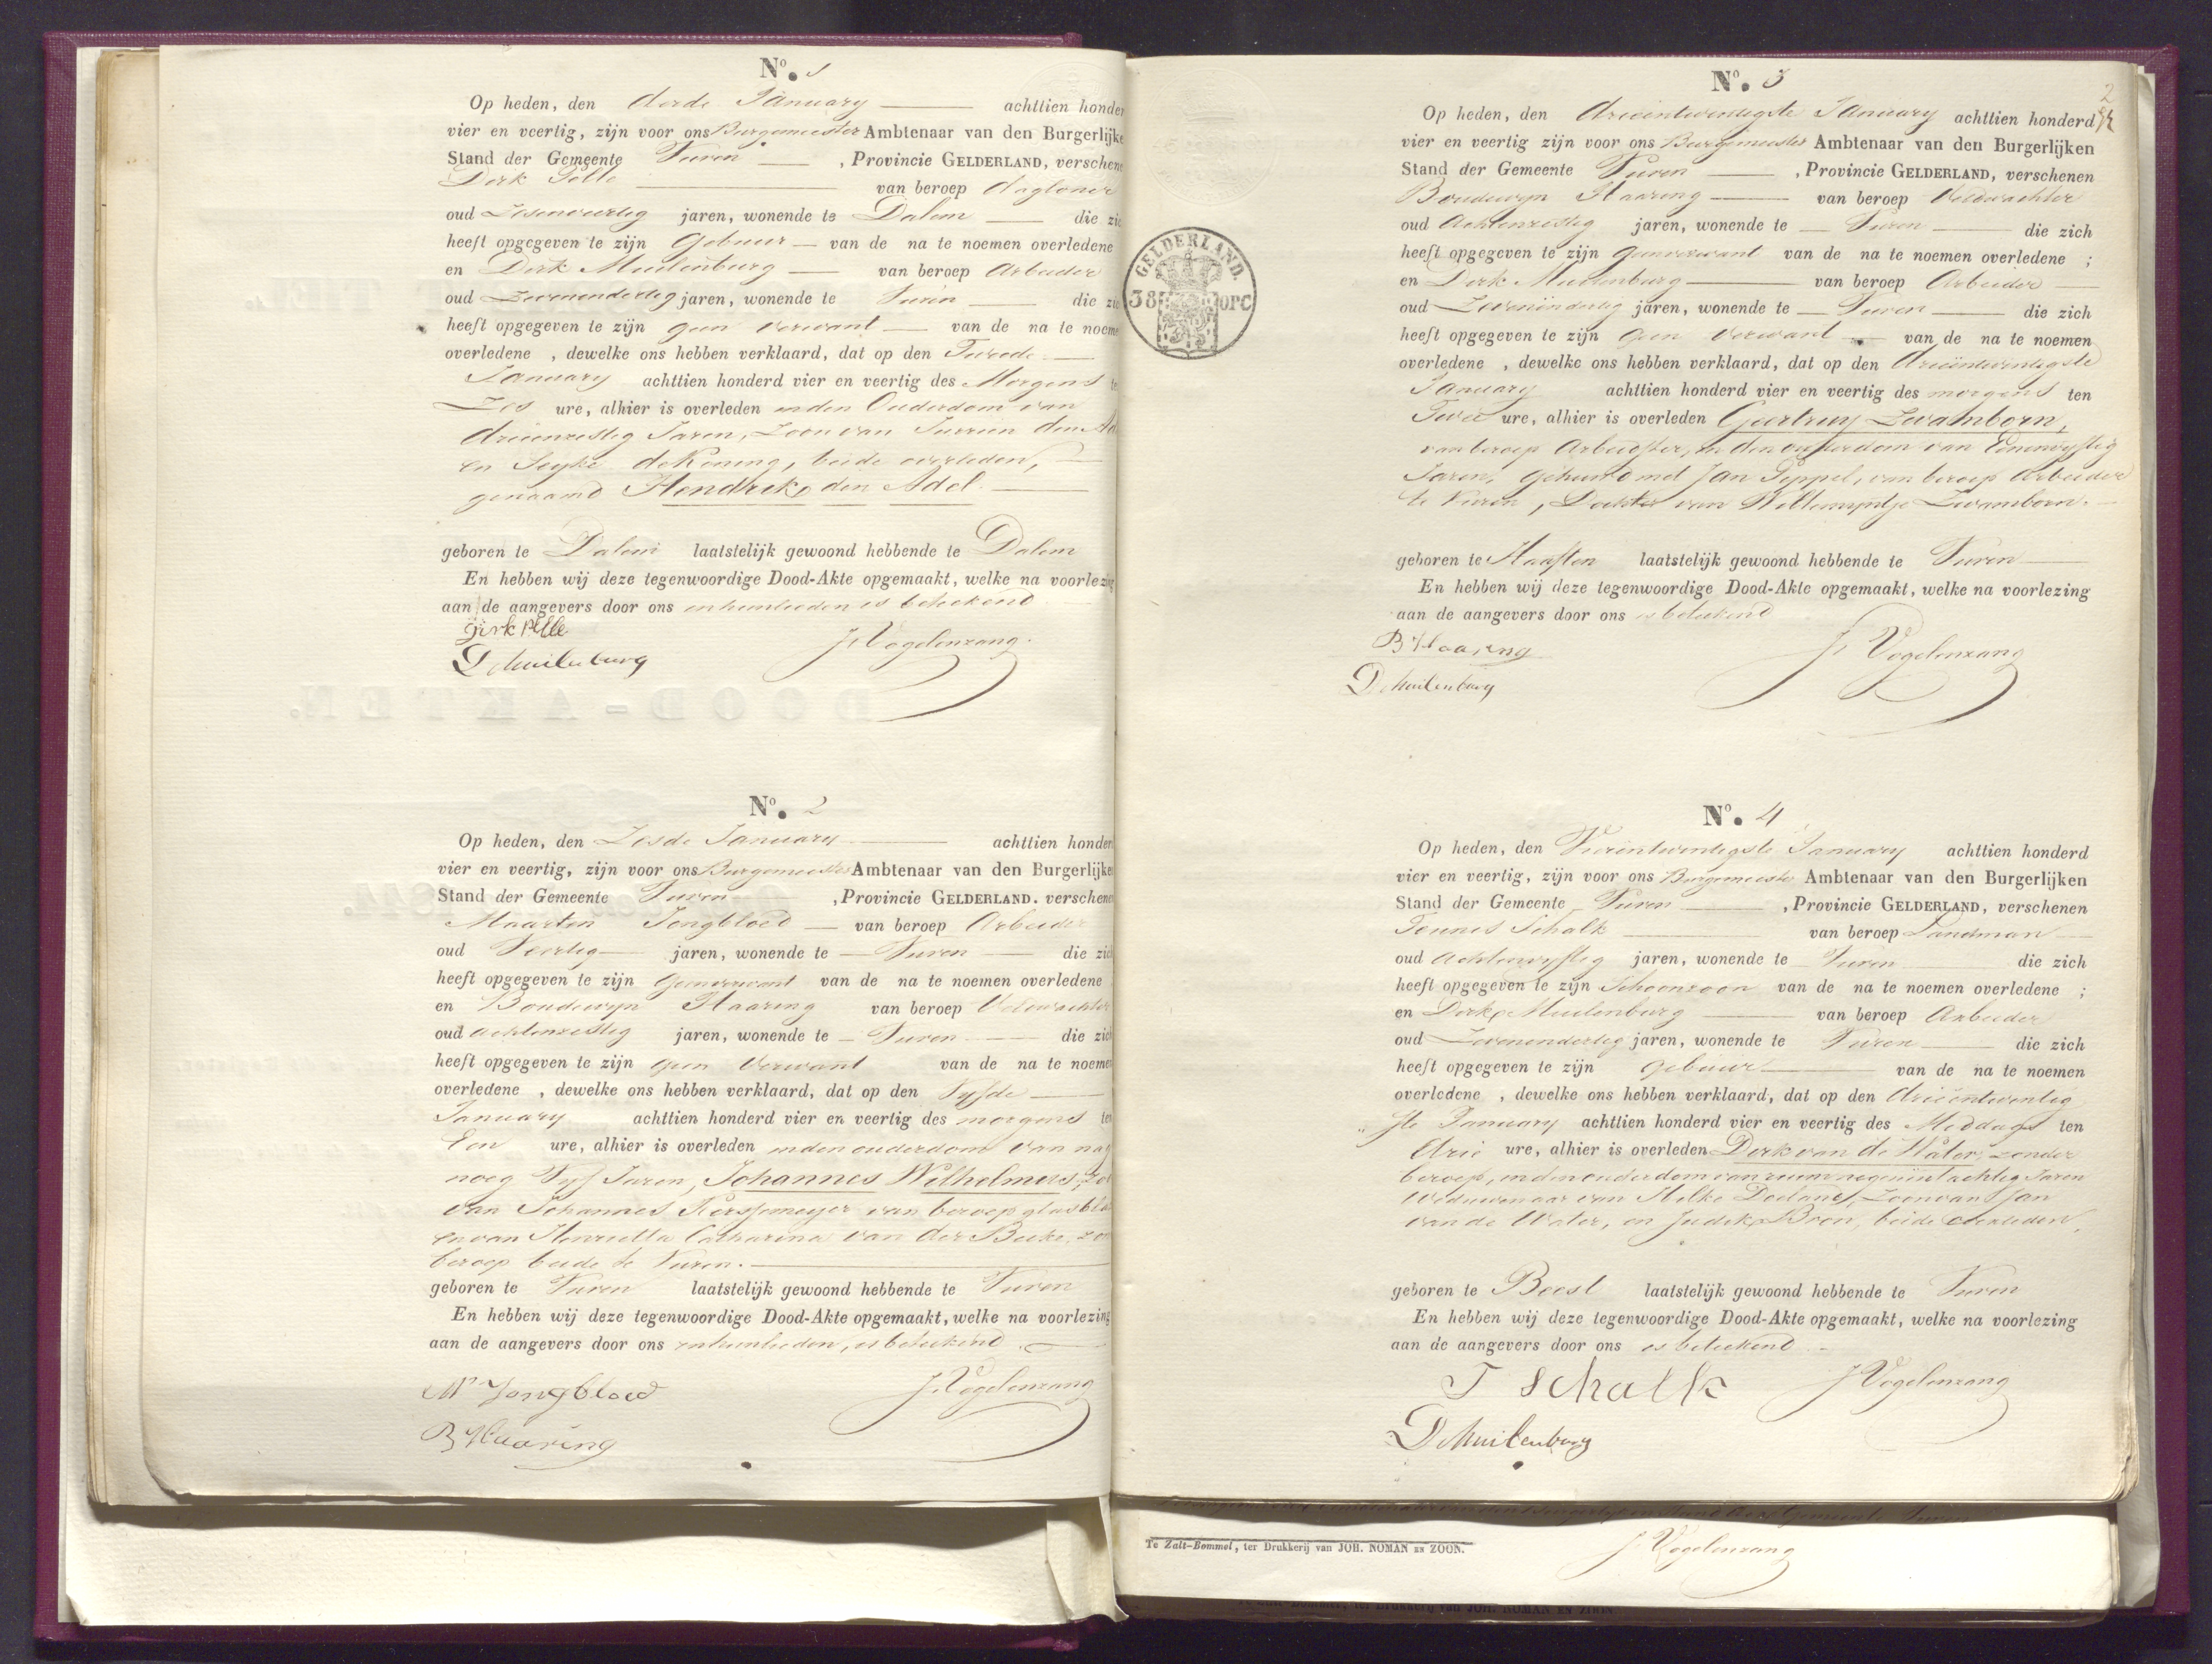 No. 1
Op heden, den derde January achttien honder
vier en veertig, zijn voor ons Burgemeester Ambtenaar van den Burgerlijke
Stand der Gemeente Vuren , Provincie GELDERLAND, verschene
Derk Pelle van beroep dagloner
oud Zesenveertig jaren, wonende te Dalem die zic
heeft opgegeven te zijn Gebuur van de na te noemen overledene
en Derk Muilenburg van beroep Arbeider
oud Zevenendertig jaren, wonende te Vuren die zic
heeft opgegeven te zijn geen verwant van de na te noeme
overledene , dewelke ons hebben verklaard, dat op den Tweede
January achttien honderd vier en veertig des Morgens te
Zes ure, alhier is overleden in den Ouderdom van
drieënzestig Jaren, Zoon van Jurrien den Ad
en Seyke de Koning, beide overleden,
genaamd Hendrik den Adel.
geboren te Dalem laatstelijk gewoond hebbende te Dalem
En hebben wij deze tegenwoordige Dood-Akte opgemaakt, welke na voorlezing
aan de aangevers door ons en hunlieden is beteekend
Dirk Pelle J. Vogelenzang.
D Muilenburg
No. 2
Op heden, den Zesde January achttien honder
vier en veertig, zijn voor ons Burgemeester Ambtenaar van den Burgerlijken
Stand der Gemeente Vuren , Provincie GELDERLAND. verschene
Maarten Jongbloed van beroep Arbeider
oud Veertig jaren, wonende te Vuren die zich
heeft opgegeven te zijn geenverwant van de na te noemen overledene
en Boudewyn Haaring van beroep Veldwachter
oud achtenzestig jaren, wonende te Vuren die zich
heeft opgegeven te zijn geen verwant van de na te noemen
overledene , dewelke ons hebben verklaard, dat op den Vyfde
January achttien honderd vier en veertig des morgens ten
Een ure, alhier is overleden in den ouderdom van nag
noeg Vyf Jaren, Johannes Wilhelmus, zo
van Johannes van beroep glasbla
en van Henrietta Catharina van der Beeke, zon
beroep beide te Vuren.
geboren te Vuren laatstelijk gewoond hebbende te Vuren
En hebben wij deze tegenwoordige Dood-Akte opgemaakt, welke na voorlezing
aan de aangevers door ons en hunlieden, is beteekend
M Jongbloed J. Vogelenzang
B Haaring
GELDERLAND.
38 OPC
2
No. 3
Op heden, den drieëntwintigste January achttien honderd
vier en veertig zijn voor ons Burgemeester Ambtenaar van den Burgerlijken
Stand der Gemeente Vuren , Provincie GELDERLAND, verschenen
Boudewyn Haaring van beroep Veldwachter
oud Achtenzestig jaren, wonende te Vuren die zich
heeft opgegeven te zijn geenverwant van de na te noemen overledene ;
en Derk Muilenburg van beroep Arbeider
oud Zevenëndertig jaren, wonende te Vuren die zich
heeft opgegeven te zijn geen verwant van de na te noemen
overledene , dewelke ons hebben verklaard, dat op den drieëntwintigste
January achttien honderd vier en veertig des morgens ten
Twee ure, alhier is overleden Geertruy Zwamborn,
van beroep Arbeidster, in den ouderdom van Eenenvyftig
Jaren, gehuwd met Jan Peppel, van beroep Arbeider
te Vuren, Dochter van Willemyntje Zwamborn.
geboren te Haaften laatstelijk gewoond hebbende te Vuren
En hebben wij deze tegenwoordige Dood-Akte opgemaakt, welke na voorlezing
aan de aangevers door ons is beteekend
B Haaring J. Vogelenzang
D Muilenburg
No. 4
Op heden, den Vierëntwintigste January achttien honderd
vier en veertig, zijn voor ons Burgemeester Ambtenaar van den Burgerlijken
Stand der Gemeente Vuren , Provincie GELDERLAND, verschenen
Teunis Schalk van beroep Landman
oud Achtenvyftig jaren, wonende te Vuren die zich
heeft opgegeven te zijn Schoonzoon van de na te noemen overledene ;
en Derk Muilenburg van beroep Arbeider
oud Zevenendertig jaren, wonende te Vuren die zich
heeft opgegeven te zijn gebuur van de na te noemen
overledene , dewelke ons hebben verklaard, dat op den drieëntwintig
„ste January achttien honderd vier en veertig des Middags ten
drie ure, alhier is overleden Derk van de Water, zonder
beroep, in den ouderdom van ruim negenëntachtig Jaren
Weduwenaar van Zoon van Jan
van de Water, en Bron, beide overleden,
geboren te Beest laatstelijk gewoond hebbende te Vuren
En hebben wij deze tegenwoordige Dood-Akte opgemaakt, welke na voorlezing
aan de aangevers door ons is beteekend
T Schalk J. Vogelenzang
D Muilenburg
Te Zalt-Bommel, ter Drukkerij van JOH. NOMAN EN ZOON.
J. Vogelenzang